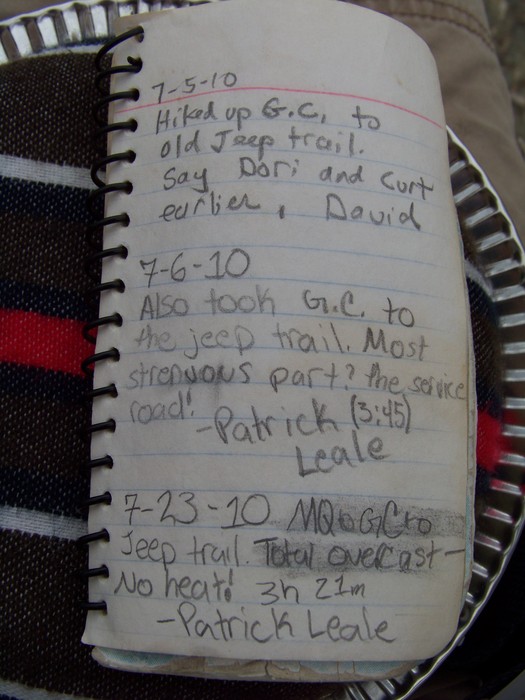 7-5-10
Hiked up G.C. to
old Jeep trail.
Say Dori and Curt
earlier, David
7-6-10
Also took G.C. to
the jeep trail. Most
strenuous part? the service
road!
-Patrick (3:45)
Leale
7-23-10 MQ to GC to
Jeep trail. Total overcast-
No heat! 3h 21m
-Patrick Leale